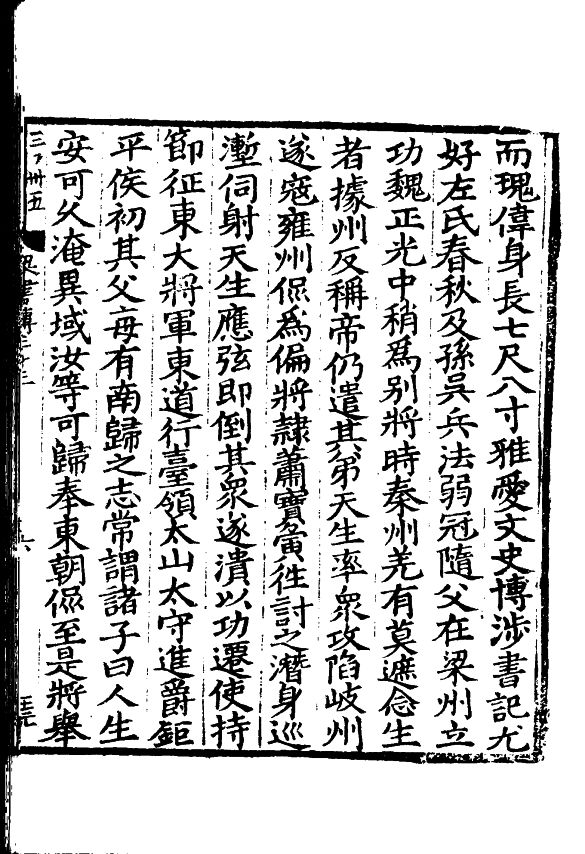 而瑰偉身長七尺八寸雅愛文史博涉書記尤
好左氏春秋及孫吳兵法弱冠隨父在梁州立
功魏正光中稍爲别將時秦州羌有莫遮念生
者據州反稱帝仍遣其弟天生率衆攻陷岐州
遂寇雍州侃爲偏將隷蕭寶夤往討之潛身巡
壍伺射天生應弦即倒其衆遂潰以功遷使持
節征東大將軍東道行臺領太山太守進爵鉅
平侯初其父每有南歸之志常謂諸子曰人生
安可久淹異域汝等可歸奉東朝侃至是將舉
三丶卅五